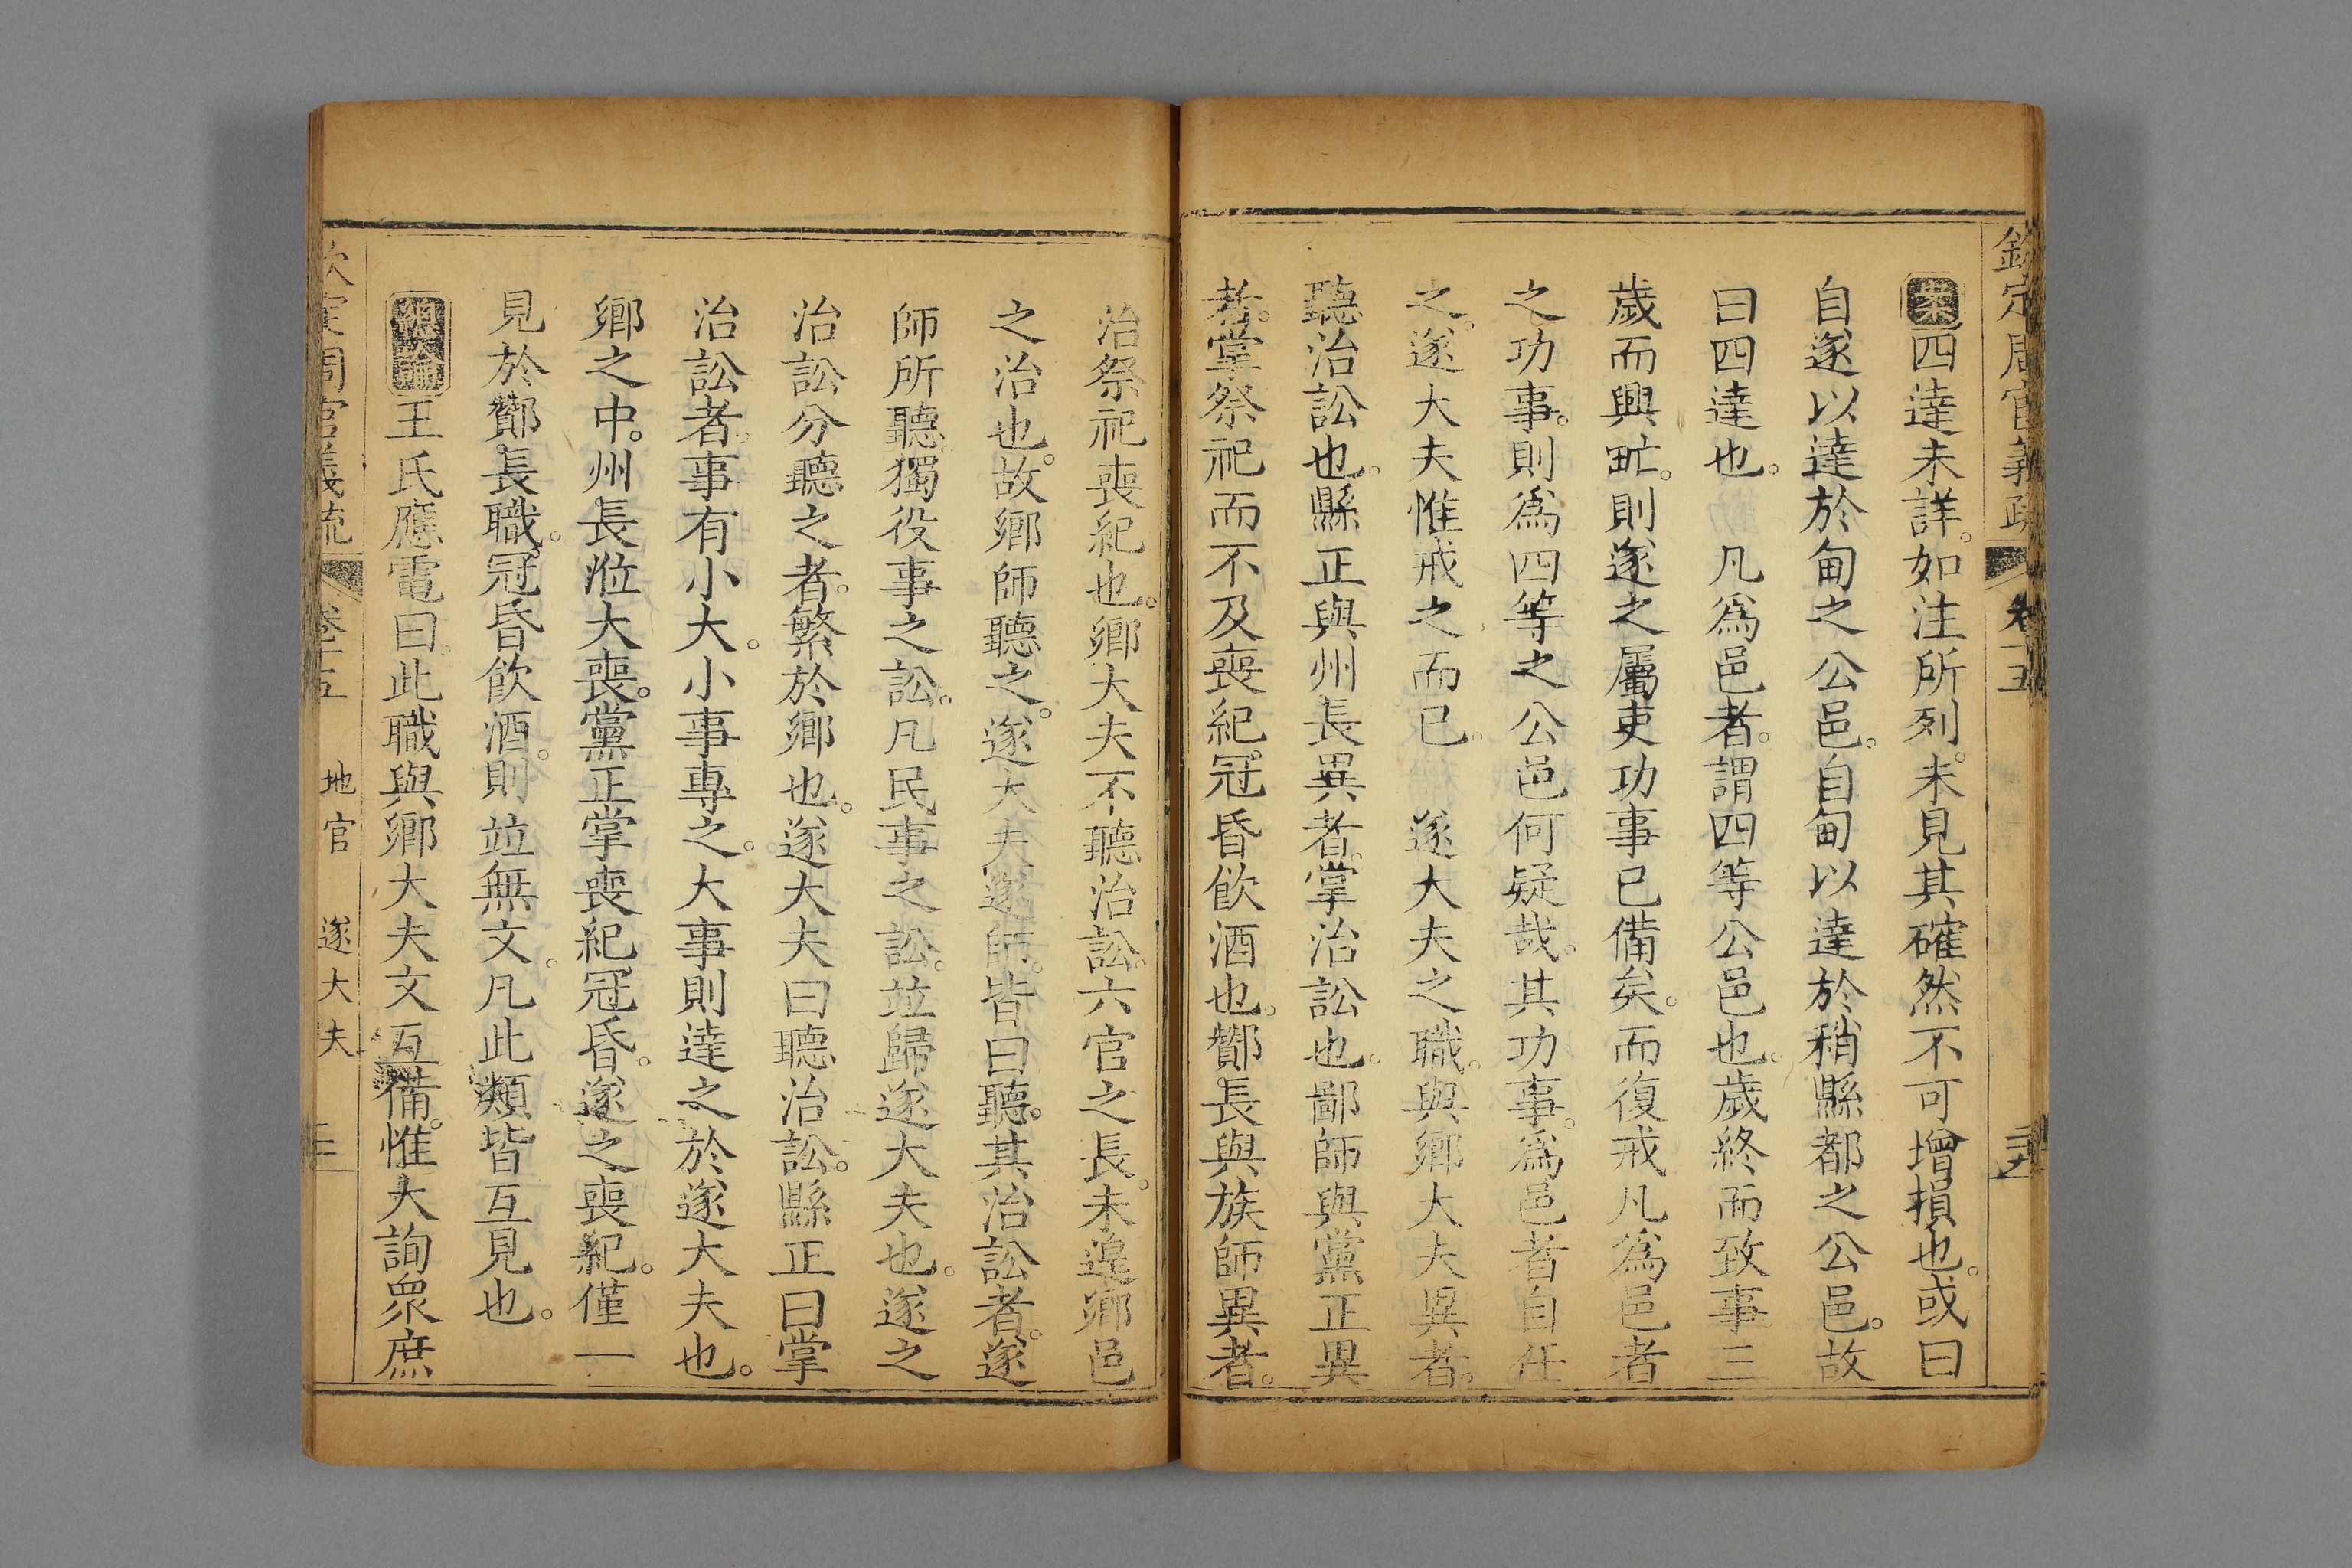 欽定周官義疏 卷十五
案四達未詳。如注所列。未見其確然不可增損也。或曰
自遂以達於甸之公邑。自甸以達於稍縣都之公邑。故
曰四達也。 凡爲邑者。謂四等公邑也。歲終而致事三
歲而興甿。則遂之屬吏功事已備矣。而復戒凡爲邑者
之功事。則爲四等之公邑何疑哉。其功事。爲邑者自任
之。遂大夫惟戒之而已。 遂大夫之職。與鄉大夫異者。
聽治訟也。縣正與州長異者。掌治訟也。鄙師與黨正異
者。掌祭祀而不及喪紀。冠昏飲酒也。酇長與族師異者。
治祭祀喪紀也。鄉大夫不聽治訟。六官之長。未遑鄉邑
之治也。故鄉師聽之。遂大夫遂師。皆曰聽。其治訟者。遂
師所聽。獨役事之訟。凡民事之訟。竝歸遂大夫也。遂之
治訟分聽之者。繁於鄉也。遂大夫曰聽治訟。縣正曰掌
治訟者。事有小大。小事專之。大事則達之於遂大夫也。
鄉之中。州長涖大喪。黨正掌喪紀冠昏。遂之喪紀。僅一
見於酇長職。冠昏飲酒。則竝無文。凡此類皆互見也。
總論王氏應電曰。此職與鄉大夫文互備。惟大詢衆庶
欽定周官義疏 卷十五 地官 遂大夫